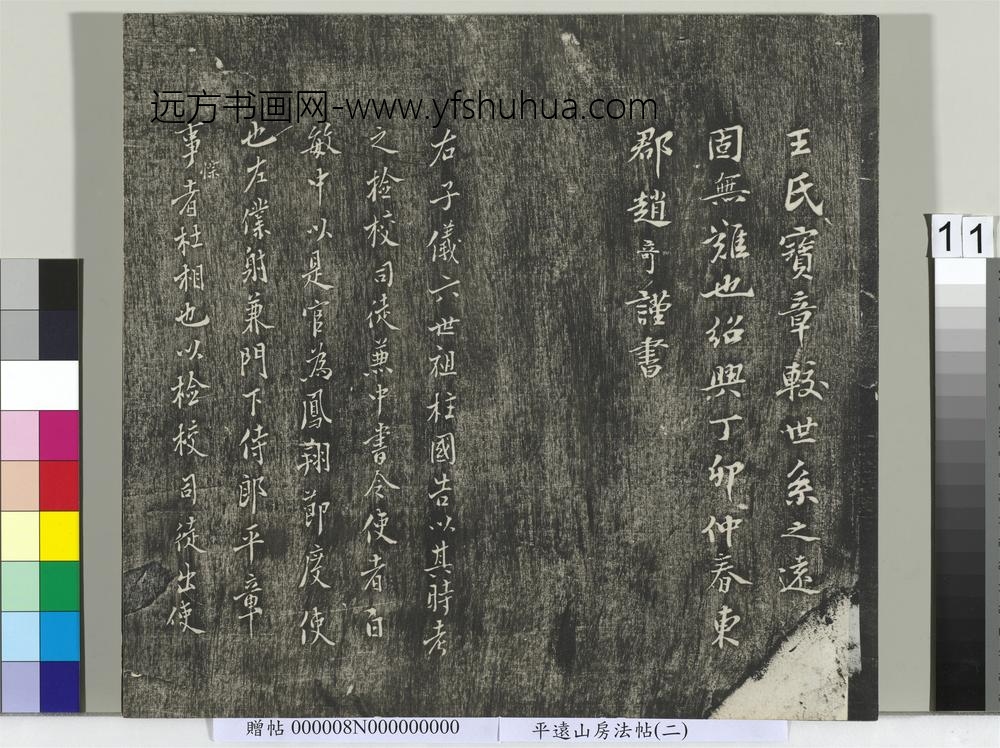 远方书画网-www.yfshuhua.com
王氏寶章較世系之遠
固無難也紹興丁卯仲春東
郡趙竒謹書
右子儀六世祖柱國告以其時考
之檢校司徒兼中書令使者白
敏中以是官為鳳翔節度使
也左僕射兼門下侍郎平章
事者杜相也以檢校司徒出使
悰
11
贈帖 000008N000000000
平遠山房法帖(二)